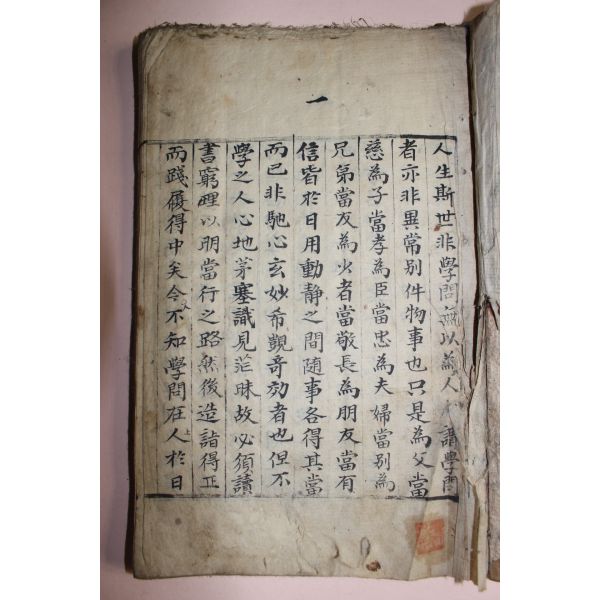 一
人生斯世非學問無以為人謂學問
者亦非異常別件物事也只是為父當
慈為子當孝為臣當忠為夫婦當別為
兄弟當友為少者當敬長為朋友當有
信皆於日用動靜之間隨事各得其當
而已非馳心玄妙希覬奇効者也但不
學之人心地茅塞識見茫昧故必須讀
書窮理以明當行之路然後造詣得正
而踐履得中矣今不知學問在人於日